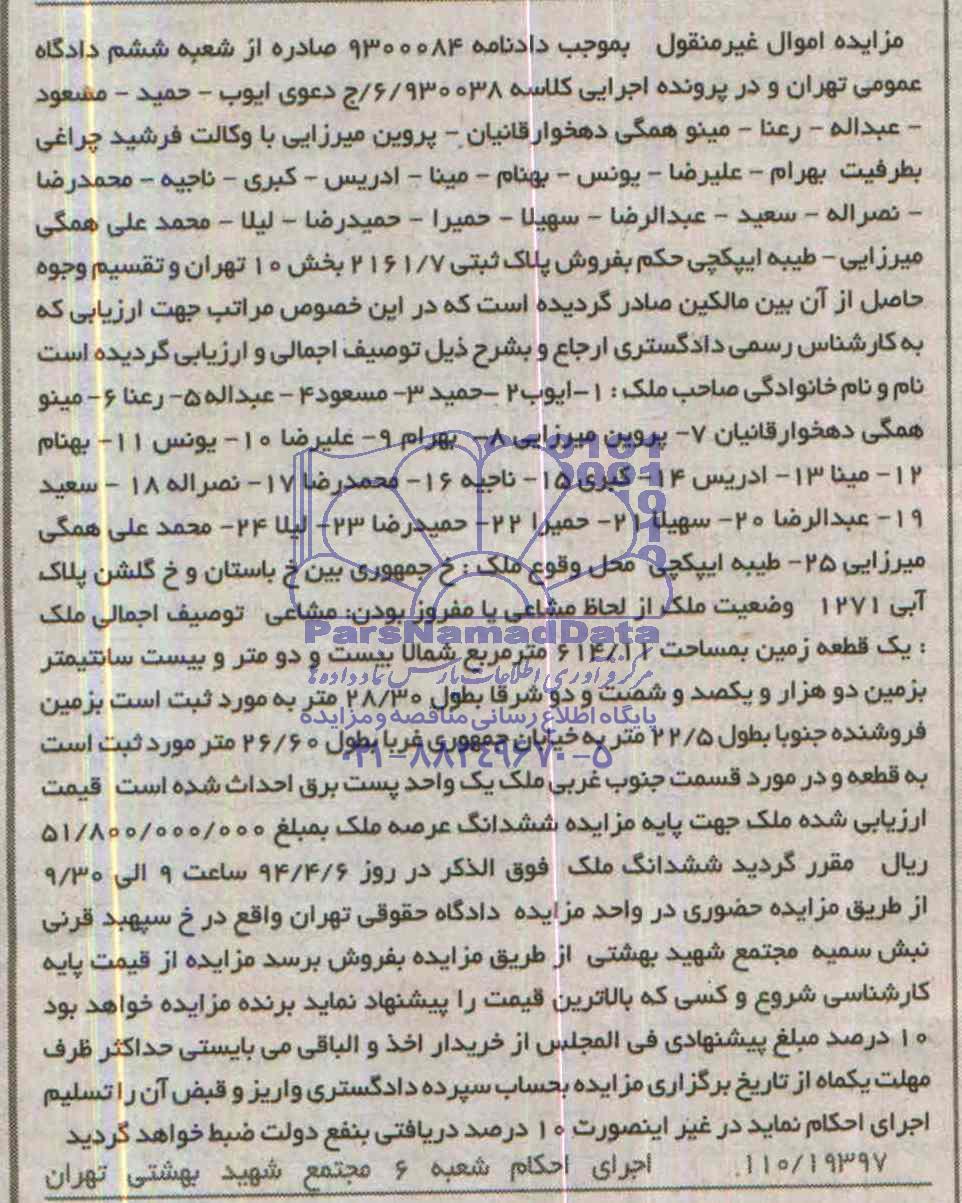 مزایده اموال غیرمنقول بموجب دادنامه ۹۳۰۰۰۸۴ صادره از شعبه ششم دادگاه
عمومی تهران و در پرونده اجرایی کلاسه ۶/۹۳۰۰۳۸/ج دعوی ایوب - حمید - مسعود
- عبداله - رعنا - مینو همگی دهخوارقانیان - پروین میرزایی با وکالت فرشید چراغی
بطرفیت بهرام - علیرضا - یونس - بهنام - مینا - ادریس - کبری - ناجیه - محمدرضا
- نصراله - سعید - عبدالرضا - سهیلا - حمیرا - حمیدرضا - لیلا - محمد علی همگی
میرزایی - طیبه ایپکچی حکم بفروش پلاک ثبتی ۲۱۶۱/۷ بخش ۱۰ تهران و تقسیم وجوه
حاصل از آن بین مالکین صادر گردیده است که در این خصوص مراتب جهت ارزیابی که
به کارشناس رسمی دادگستری ارجاع و بشرح ذیل توصیف اجمالی و ارزیابی گردیده است
نام و نام خانوادگی صاحب ملک : ۱-ایوب۲ -حمید ۳- مسعود۴ - عبداله۵- رعنا ۶- مینو
همگی دهخوارقانیان ۷- پروین میرزایی ۸- بهرام ۹- علیرضا ۱۰- یونس ۱۱- بهنام
۱۲- مینا ۱۳- ادریس ۱۴- کبری ۱۵- ناجیه ۱۶- محمدرضا ۱۷- نصراله ۱۸ - سعید
۱۹- عبدالرضا ۲۰- سهیلا ۲۱- حمیرا ۲۲- حمیدرضا ۲۳- لیلا ۲۴- محمد علی همگی
میرزایی ۲۵- طیبه ایپکچی محل وقوع ملک : خ جمهوری بین خ باستان و خ گلشن پلاک
آبی ۱۲۷۱ وضعیت ملک از لحاظ مشاعی یا مفروز بودن: مشاعی توصیف اجمالی ملک
ParsNamadData
: یک قطعه زمین بمساحت ۶۱۴/۱۱ مترمربع شمالا بیست و دو متر و بیست سانتیمتر
مرکز فرآوری اطلاعات پارس نماد داده‌ها
بزمین دو هزار و یکصد و شصت و دو شرقا بطول ۲۸/۳۰ متر به مورد ثبت است بزمین
پایگاه اطلاع رسانی مناقصه و مزایده
فروشنده جنوبا بطول ۲۲/۵ متر به خیابان جمهوری غربا بطول ۲۶/۶۰ متر مورد ثبت است
۰۲۱-۸۸۳۴۹۶۷۰-۵
به قطعه و در مورد قسمت جنوب غربی ملک یک واحد پست برق احداث شده است قیمت
ارزیابی شده ملک جهت پایه مزایده ششدانگ عرصه ملک بمبلغ ۵۱/۸۰۰/۰۰۰/۰۰۰
ریال مقرر گردید ششدانگ ملک فوق الذکر در روز ۹۴/۴/۶ ساعت ۹ الی ۹/۳۰
از طریق مزایده حضوری در واحد مزایده دادگاه حقوقی تهران واقع در خ سپهبد قرنی
نبش سمیه مجتمع شهید بهشتی از طریق مزایده بفروش برسد مزایده از قیمت پایه
کارشناسی شروع و کسی که بالاترین قیمت را پیشنهاد نماید برنده مزایده خواهد بود
۱۰ درصد مبلغ پیشنهادی فی المجلس از خریدار اخذ و الباقی می بایستی حداکثر ظرف
مهلت یکماه از تاریخ برگزاری مزایده بحساب سپرده دادگستری واریز و قبض آن را تسلیم
اجرای احکام نماید در غیر اینصورت ۱۰ درصد دریافتی بنفع دولت ضبط خواهد گردید
۱۱۰/۱۹۳۹۷ اجرای احکام شعبه ۶ مجتمع شهید بهشتی تهران